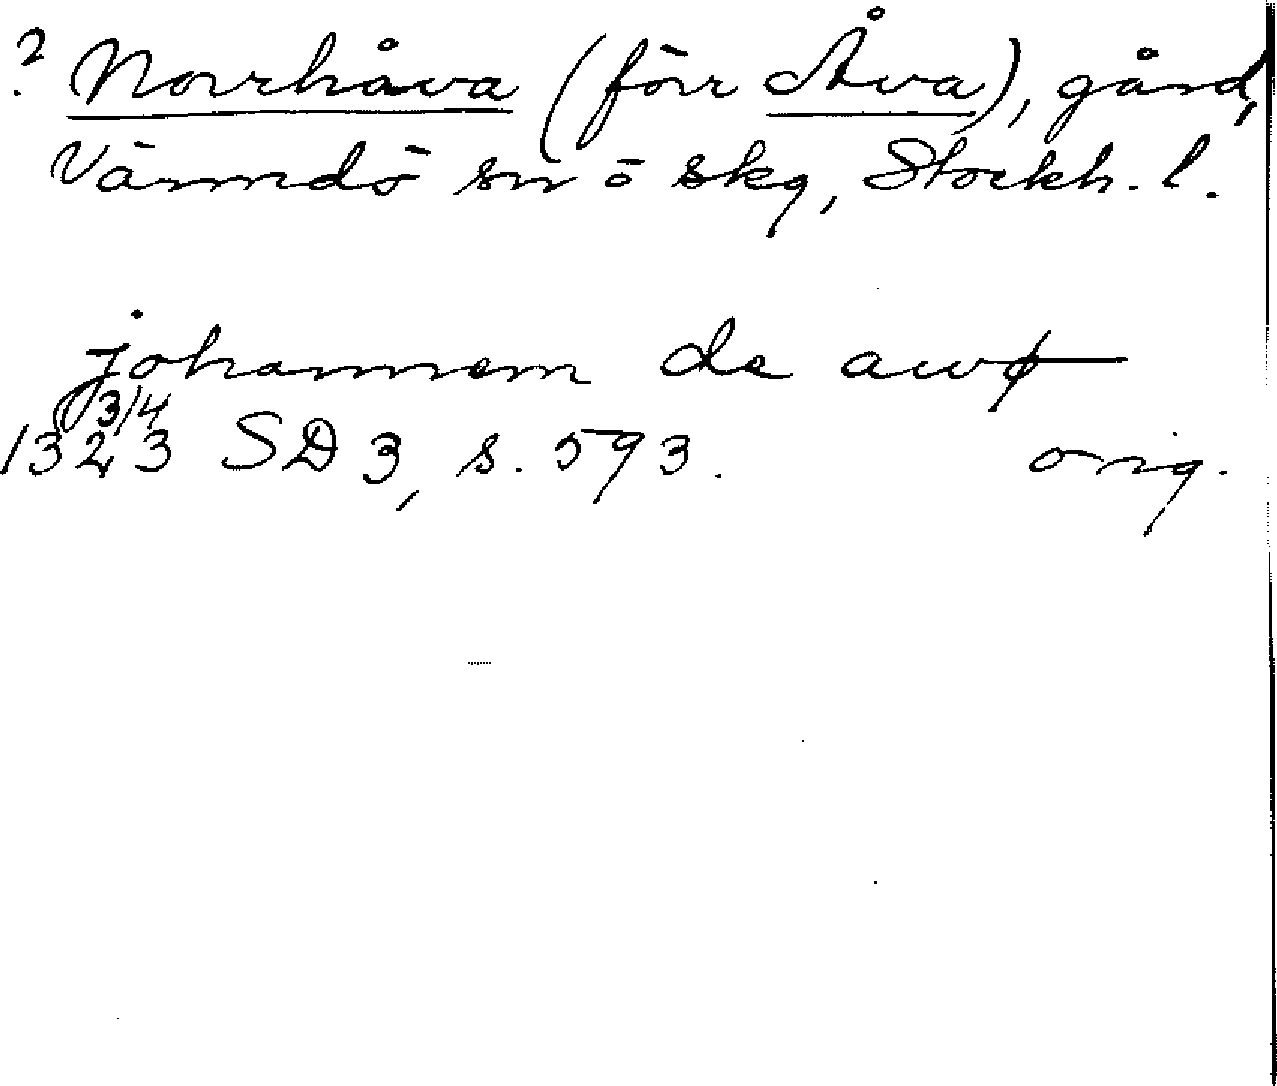 ? Norrhåva (förr Åva), gård,
Värmdö sn ö skg, Stockh. l.
johannem de awø
1323 3/4 SD 3, s. 593. orig.